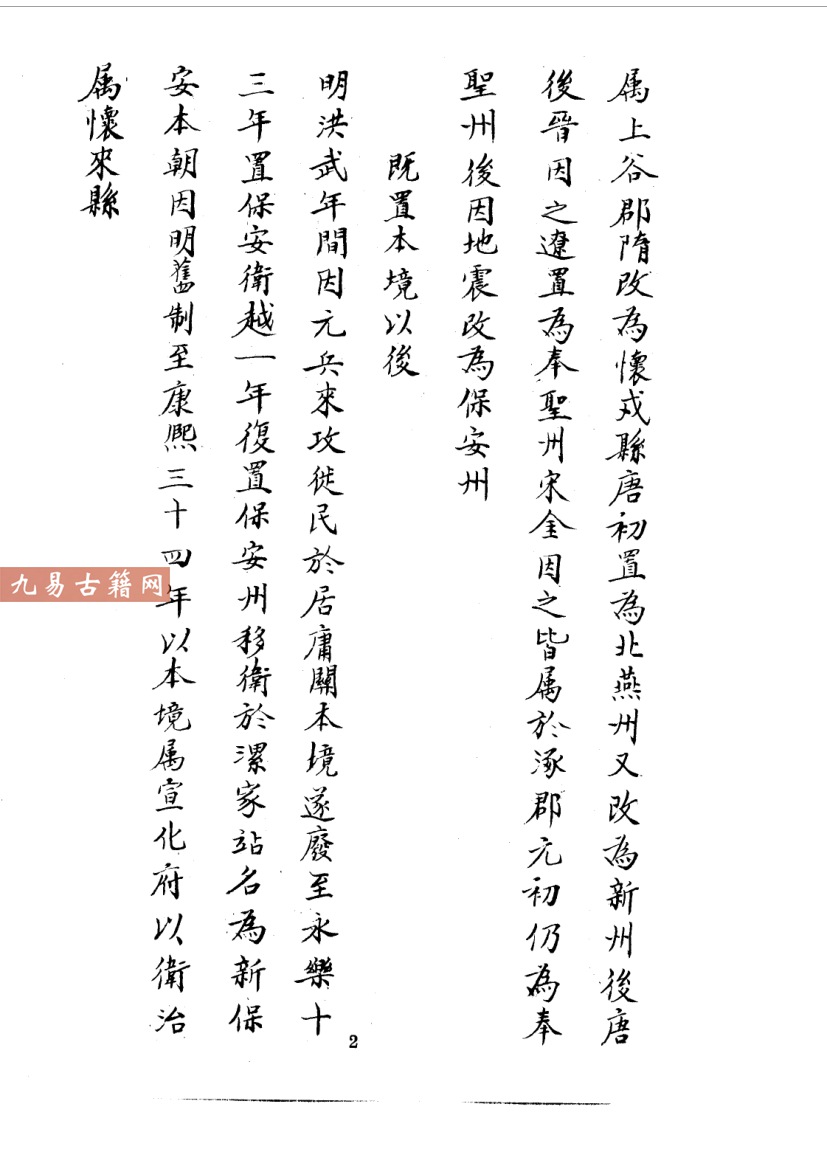 属上谷郡隋改為懷戎縣唐初置為北燕州又改為新州後唐
後晉因之遼置為奉聖州宋金因之皆属於涿郡元初仍為奉
聖州後因地震改為保安州
既置本境以後
明洪武年間因元兵來攻徙民於居庸關本境遂廢至永樂十
三年置保安衛越一年復置保安州移衛於漯家站名為新保
安本朝因明舊制至康熙三十四年以本境属宣化府以衛治
属懷來縣
九易古籍网
2